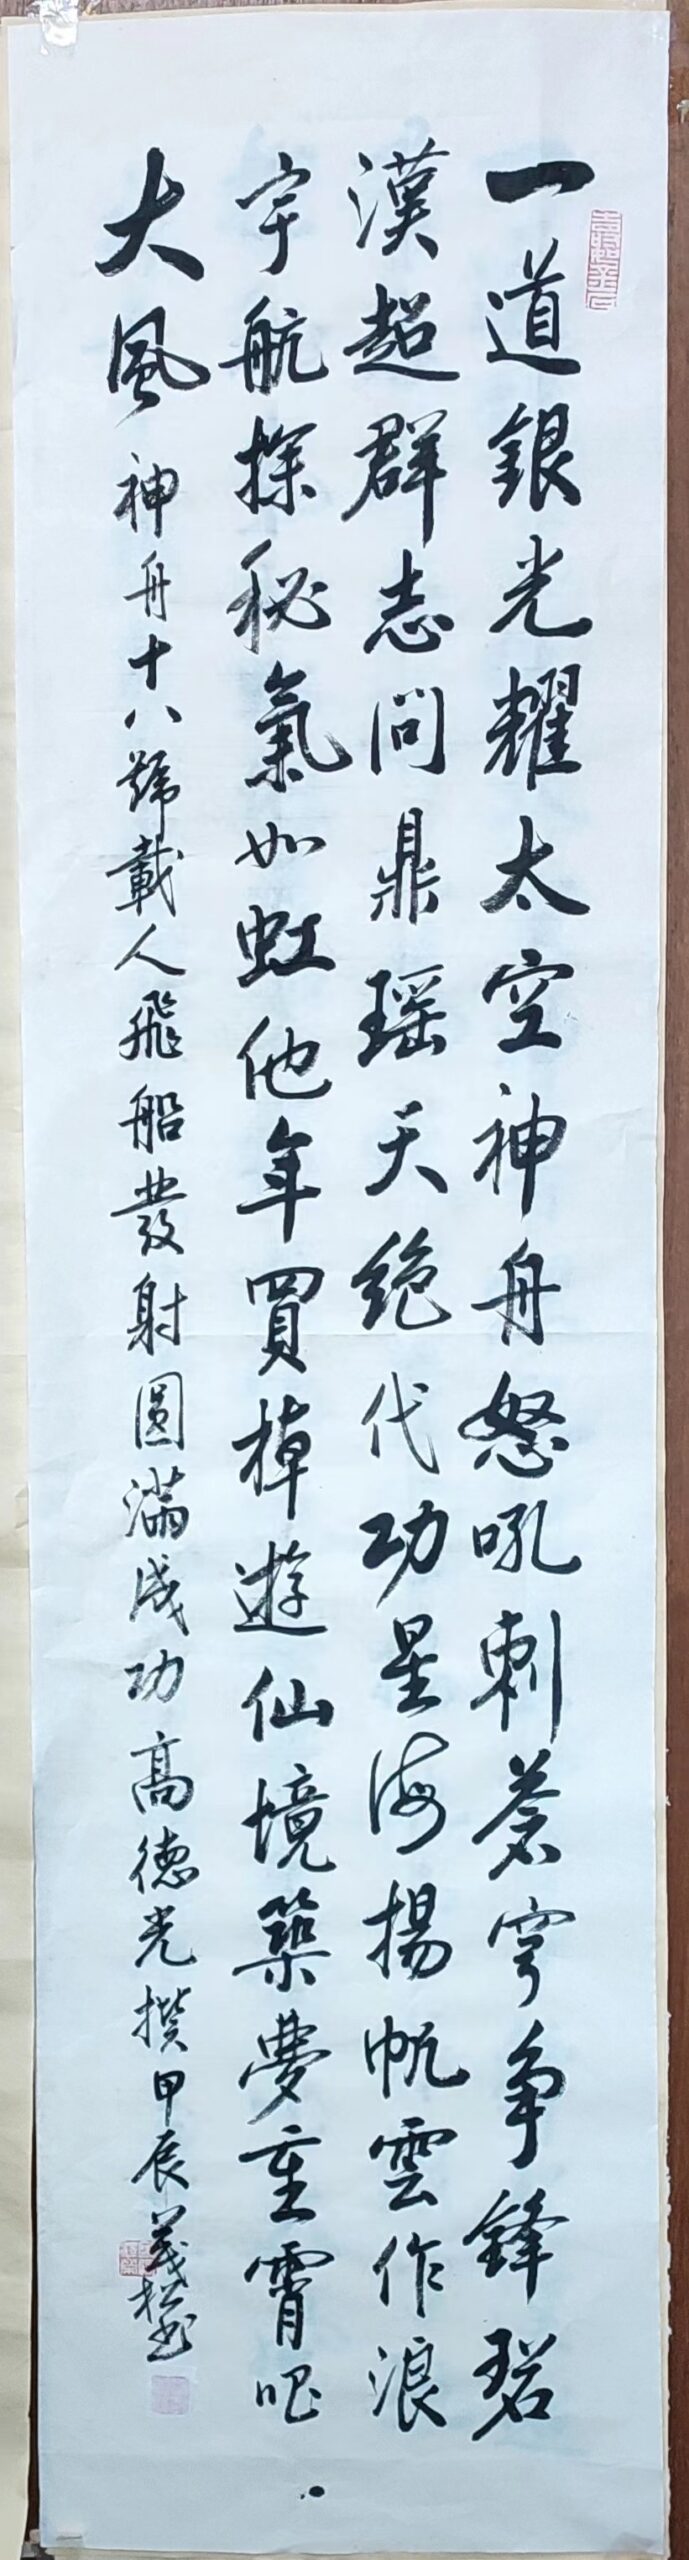 一道銀光耀太空神舟怒吼刺蒼穹争鋒碧
漢超群志問鼎瑶天絶代功星海揚帆雲作浪
宇航探秘氣如虹他年買棹遊仙境築夢重霄唱
大風 神舟十八號載人飛船發射圓滿成功 高德光撰甲辰茂松書